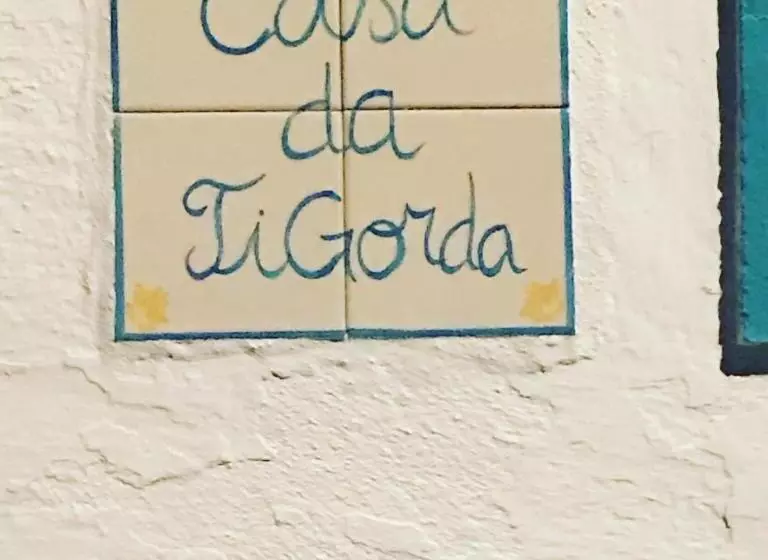 Casa
da
TiGorda